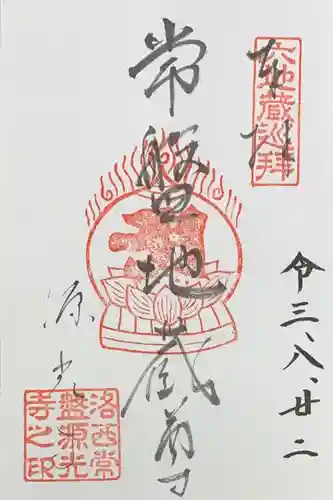 奉拝
六地蔵巡拝
令三、八、廿二
常盤地蔵尊
源光
洛西常
盤源光
寺之印